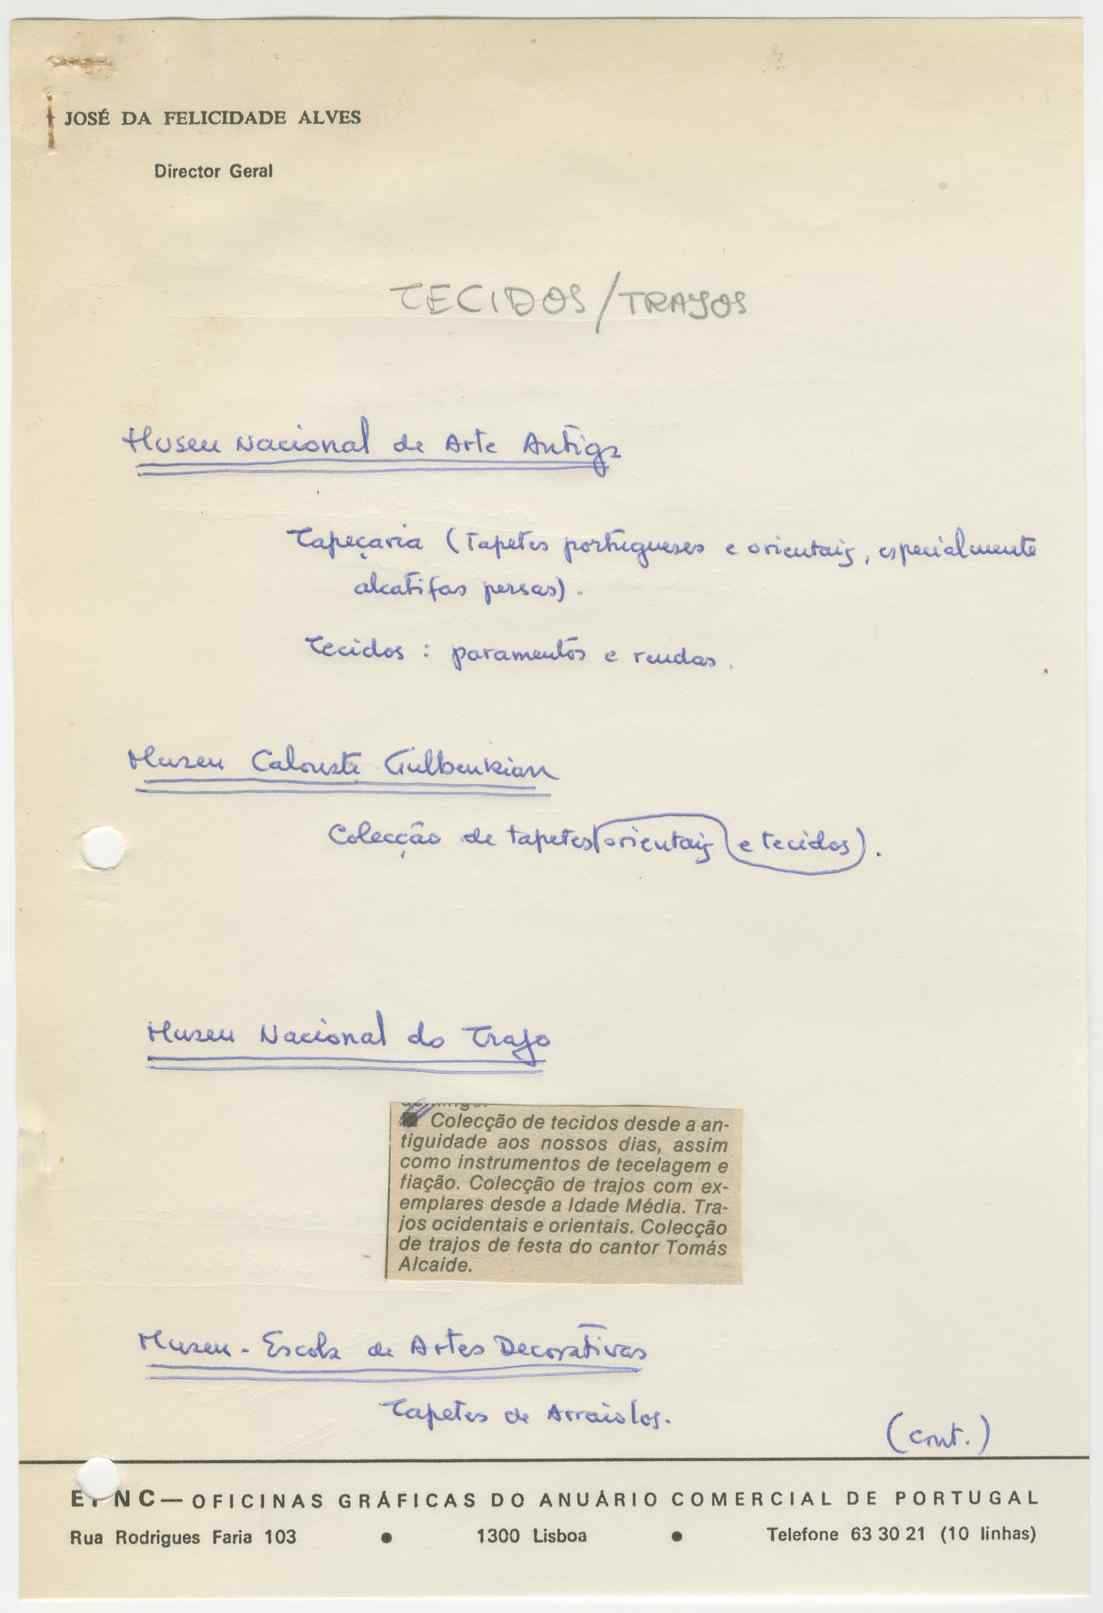 JOSÉ DA FELICIDADE ALVES
Director Geral
TECIDOS/TRAJOS
Museu Nacional de Arte Antiga
Tapeçaria (tapetes portugueses e orientais, especialmente
alcatifas persas).
Tecidos: paramentos e rendas.
Museu Calouste Gulbenkian
Colecção de tapetes (orientais e tecidos).
Museu Nacional do Trajo
Colecção de tecidos desde a an-
tiguidade aos nossos dias, assim
como instrumentos de tecelagem e
fiação. Colecção de trajos com ex-
emplares desde a Idade Média. Tra-
jos ocidentais e orientais. Colecção
de trajos de festa do cantor Tomás
Alcaide.
Museu-Escola de Artes Decorativas
Tapetes de Arraiolos.
(cont.)
NC — OFICINAS GRÁFICAS DO ANUÁRIO COMERCIAL DE PORTUGAL
Rua Rodrigues Faria 103 • 1300 Lisboa • Telefone 63 30 21 (10 linhas)